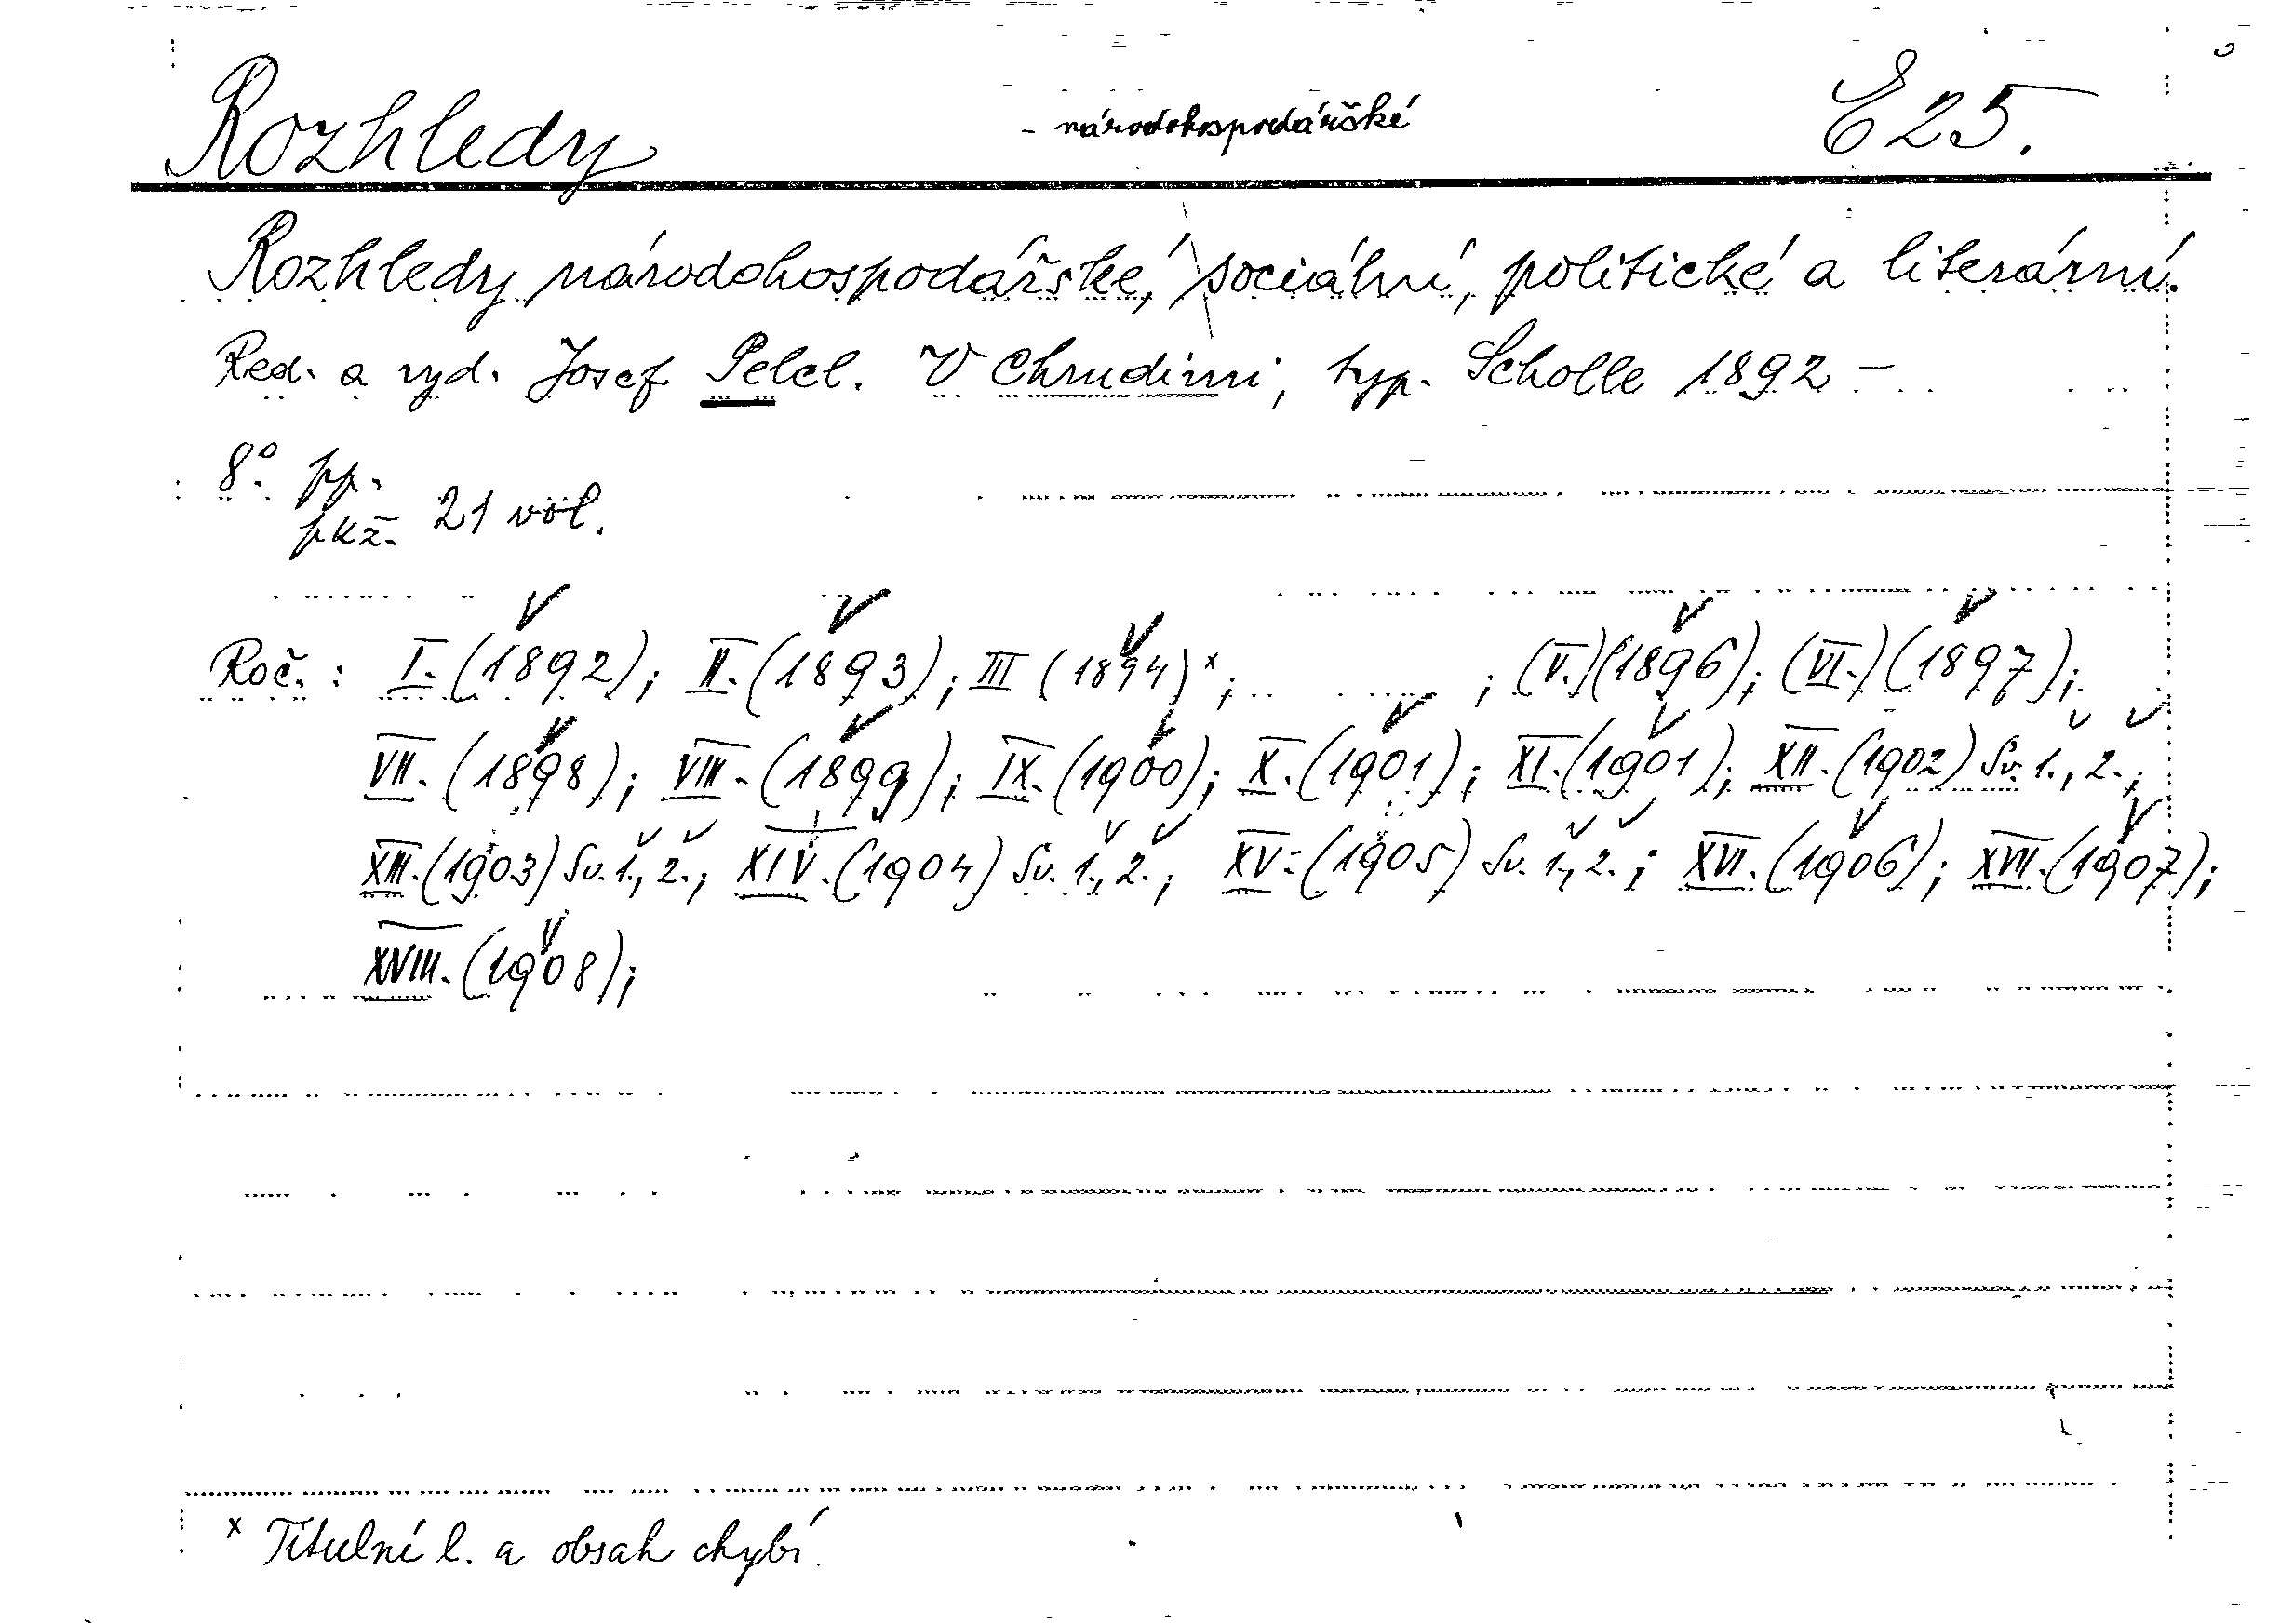 Rozhledy - národohospodářské E 25.
Rozhledy národohospodářské, sociální, politické a literární.
Red. a vyd. Josef Pelcl. V Chrudimi, typ. Scholle 1892 –
8°. pp.
pkž. 21 vol.
Roč. : I. (1892); II. (1893); III (1894)ˣ; ; (V.)(1896); (VI.)(1897);
VII. (1898); VIII. (1899); IX. (1900); X. (1901); XI. (1901); XII. (1902) Sv. 1., 2.;
XIII. (1903) Sv. 1., 2.; XIV. (1904) Sv. 1., 2.; XV. (1905) Sv. 1., 2.; XVI. (1906); XVII. (1907);
XVIII. (1908);
ˣ Titulní l. a obsah chybí.